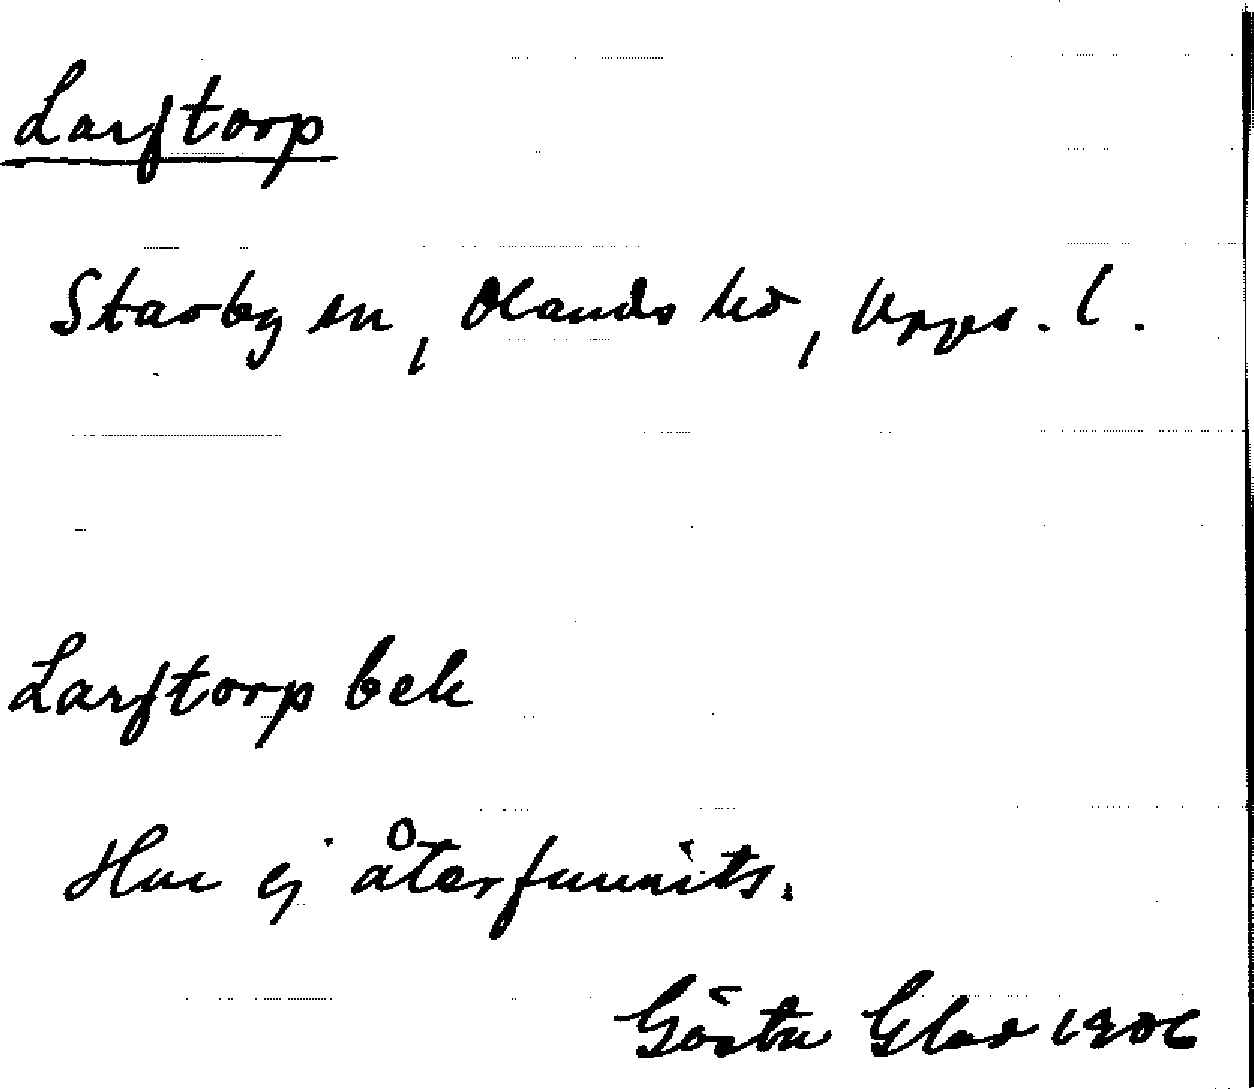 Larftorp
Stavby sn, Olands hd, Upps. l.
Larftorp bek
Har ej återfunnits.
Gösta